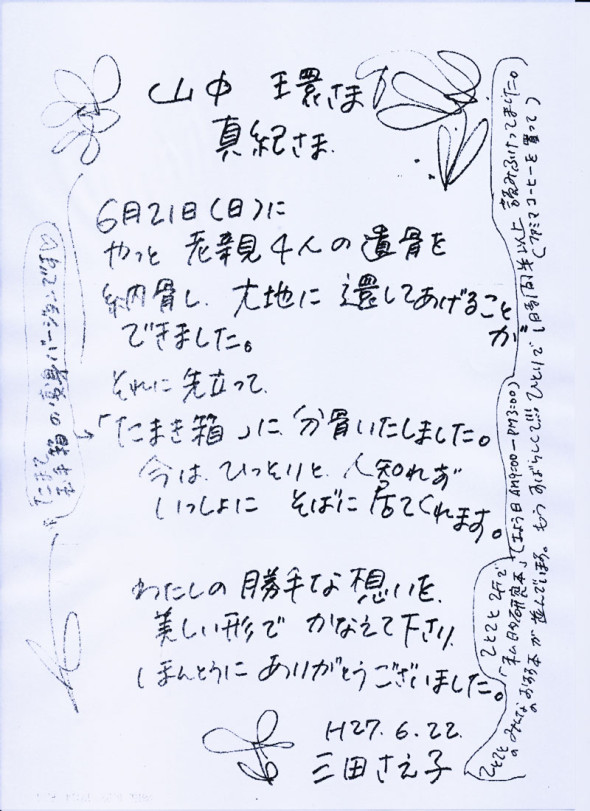 山中 環さま
真紀さま
6月21日(日)に
やっと 老親4人の遺骨を
納骨し、大地に還してあげること
が
できました。
それに先立って、
「たまき箱」に分骨いたしました。
今は、ひっそりと、人知れず
いっしょに そばに居てくれます。
わたしの勝手な想いを、
美しい形で かなえて下さり
ほんとうに ありがとうございました。
H27.6.22.
三田さえ子
たまて
玉手箱の変身バージョンですね
ことこと2Fで
「私的研究本」(土よう日AM9:00-PM3:00)
ひとりで1時間半以上読みふけってました。
(ファミマコーヒーを買って)
ことこと
のみんなのお本が並んでいます。もうすばらしくて…